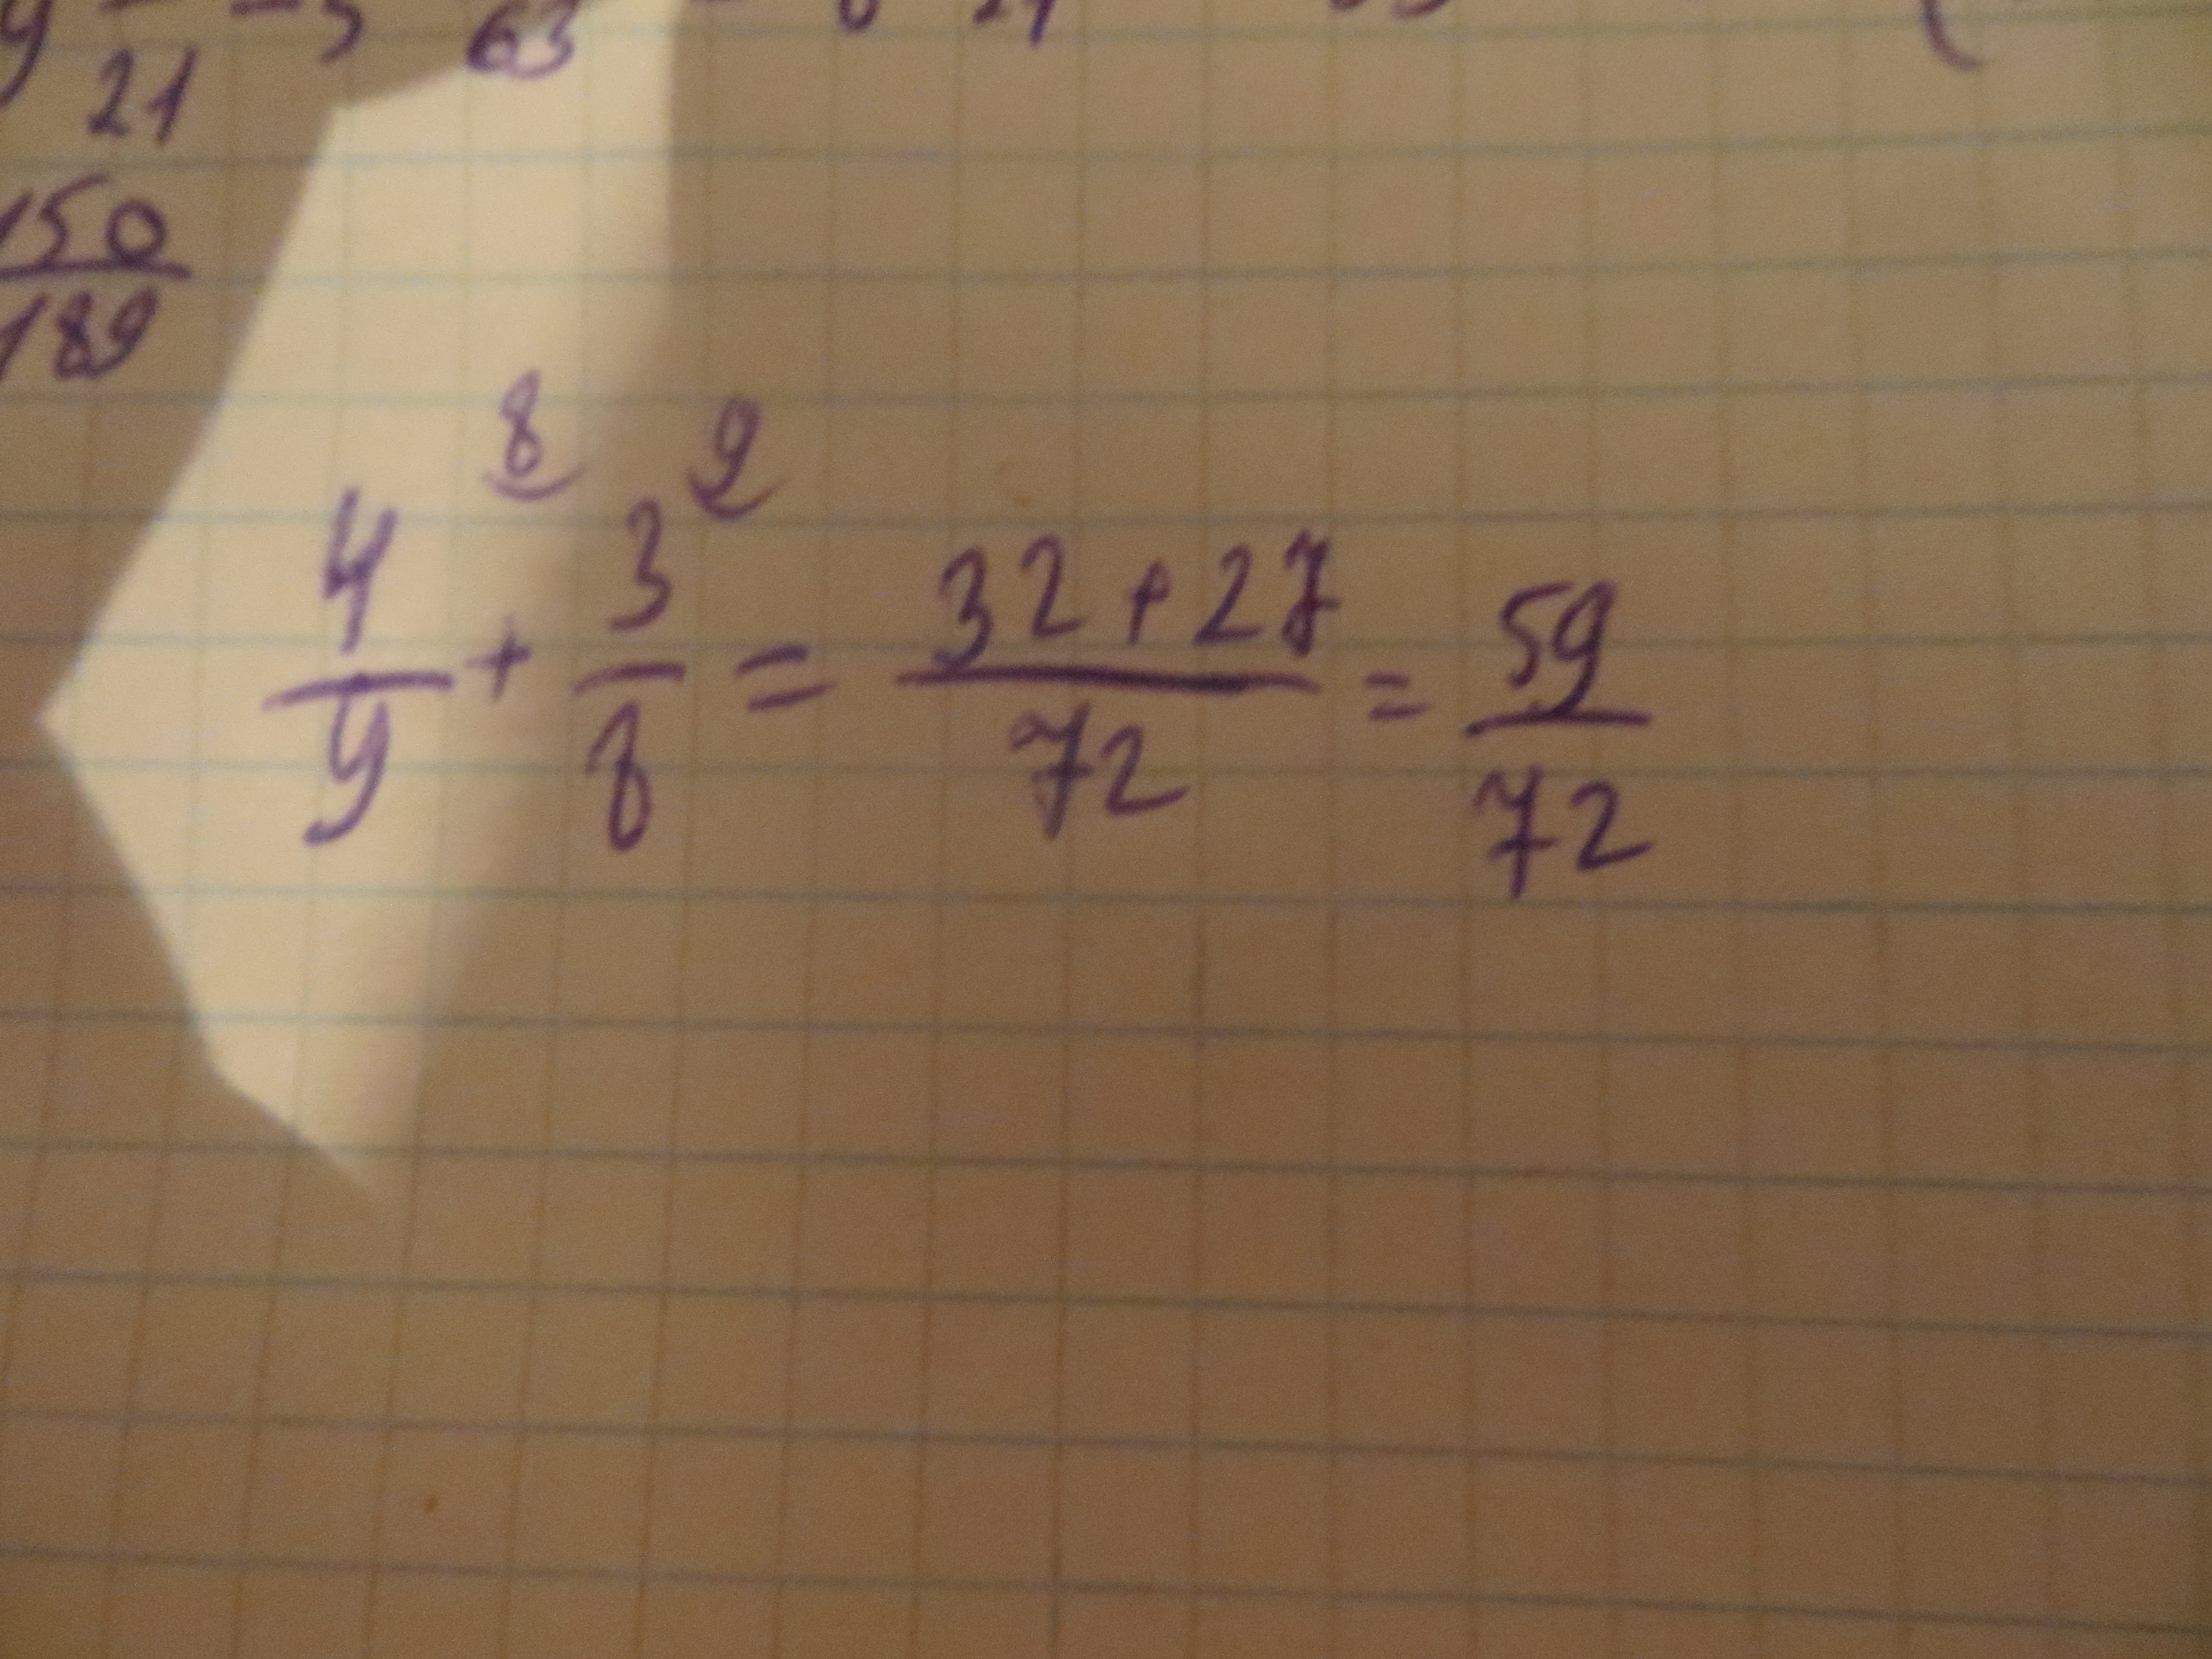 21
63
150
189
8 9
4/9 + 3/8 = 32+27/72 = 59/72